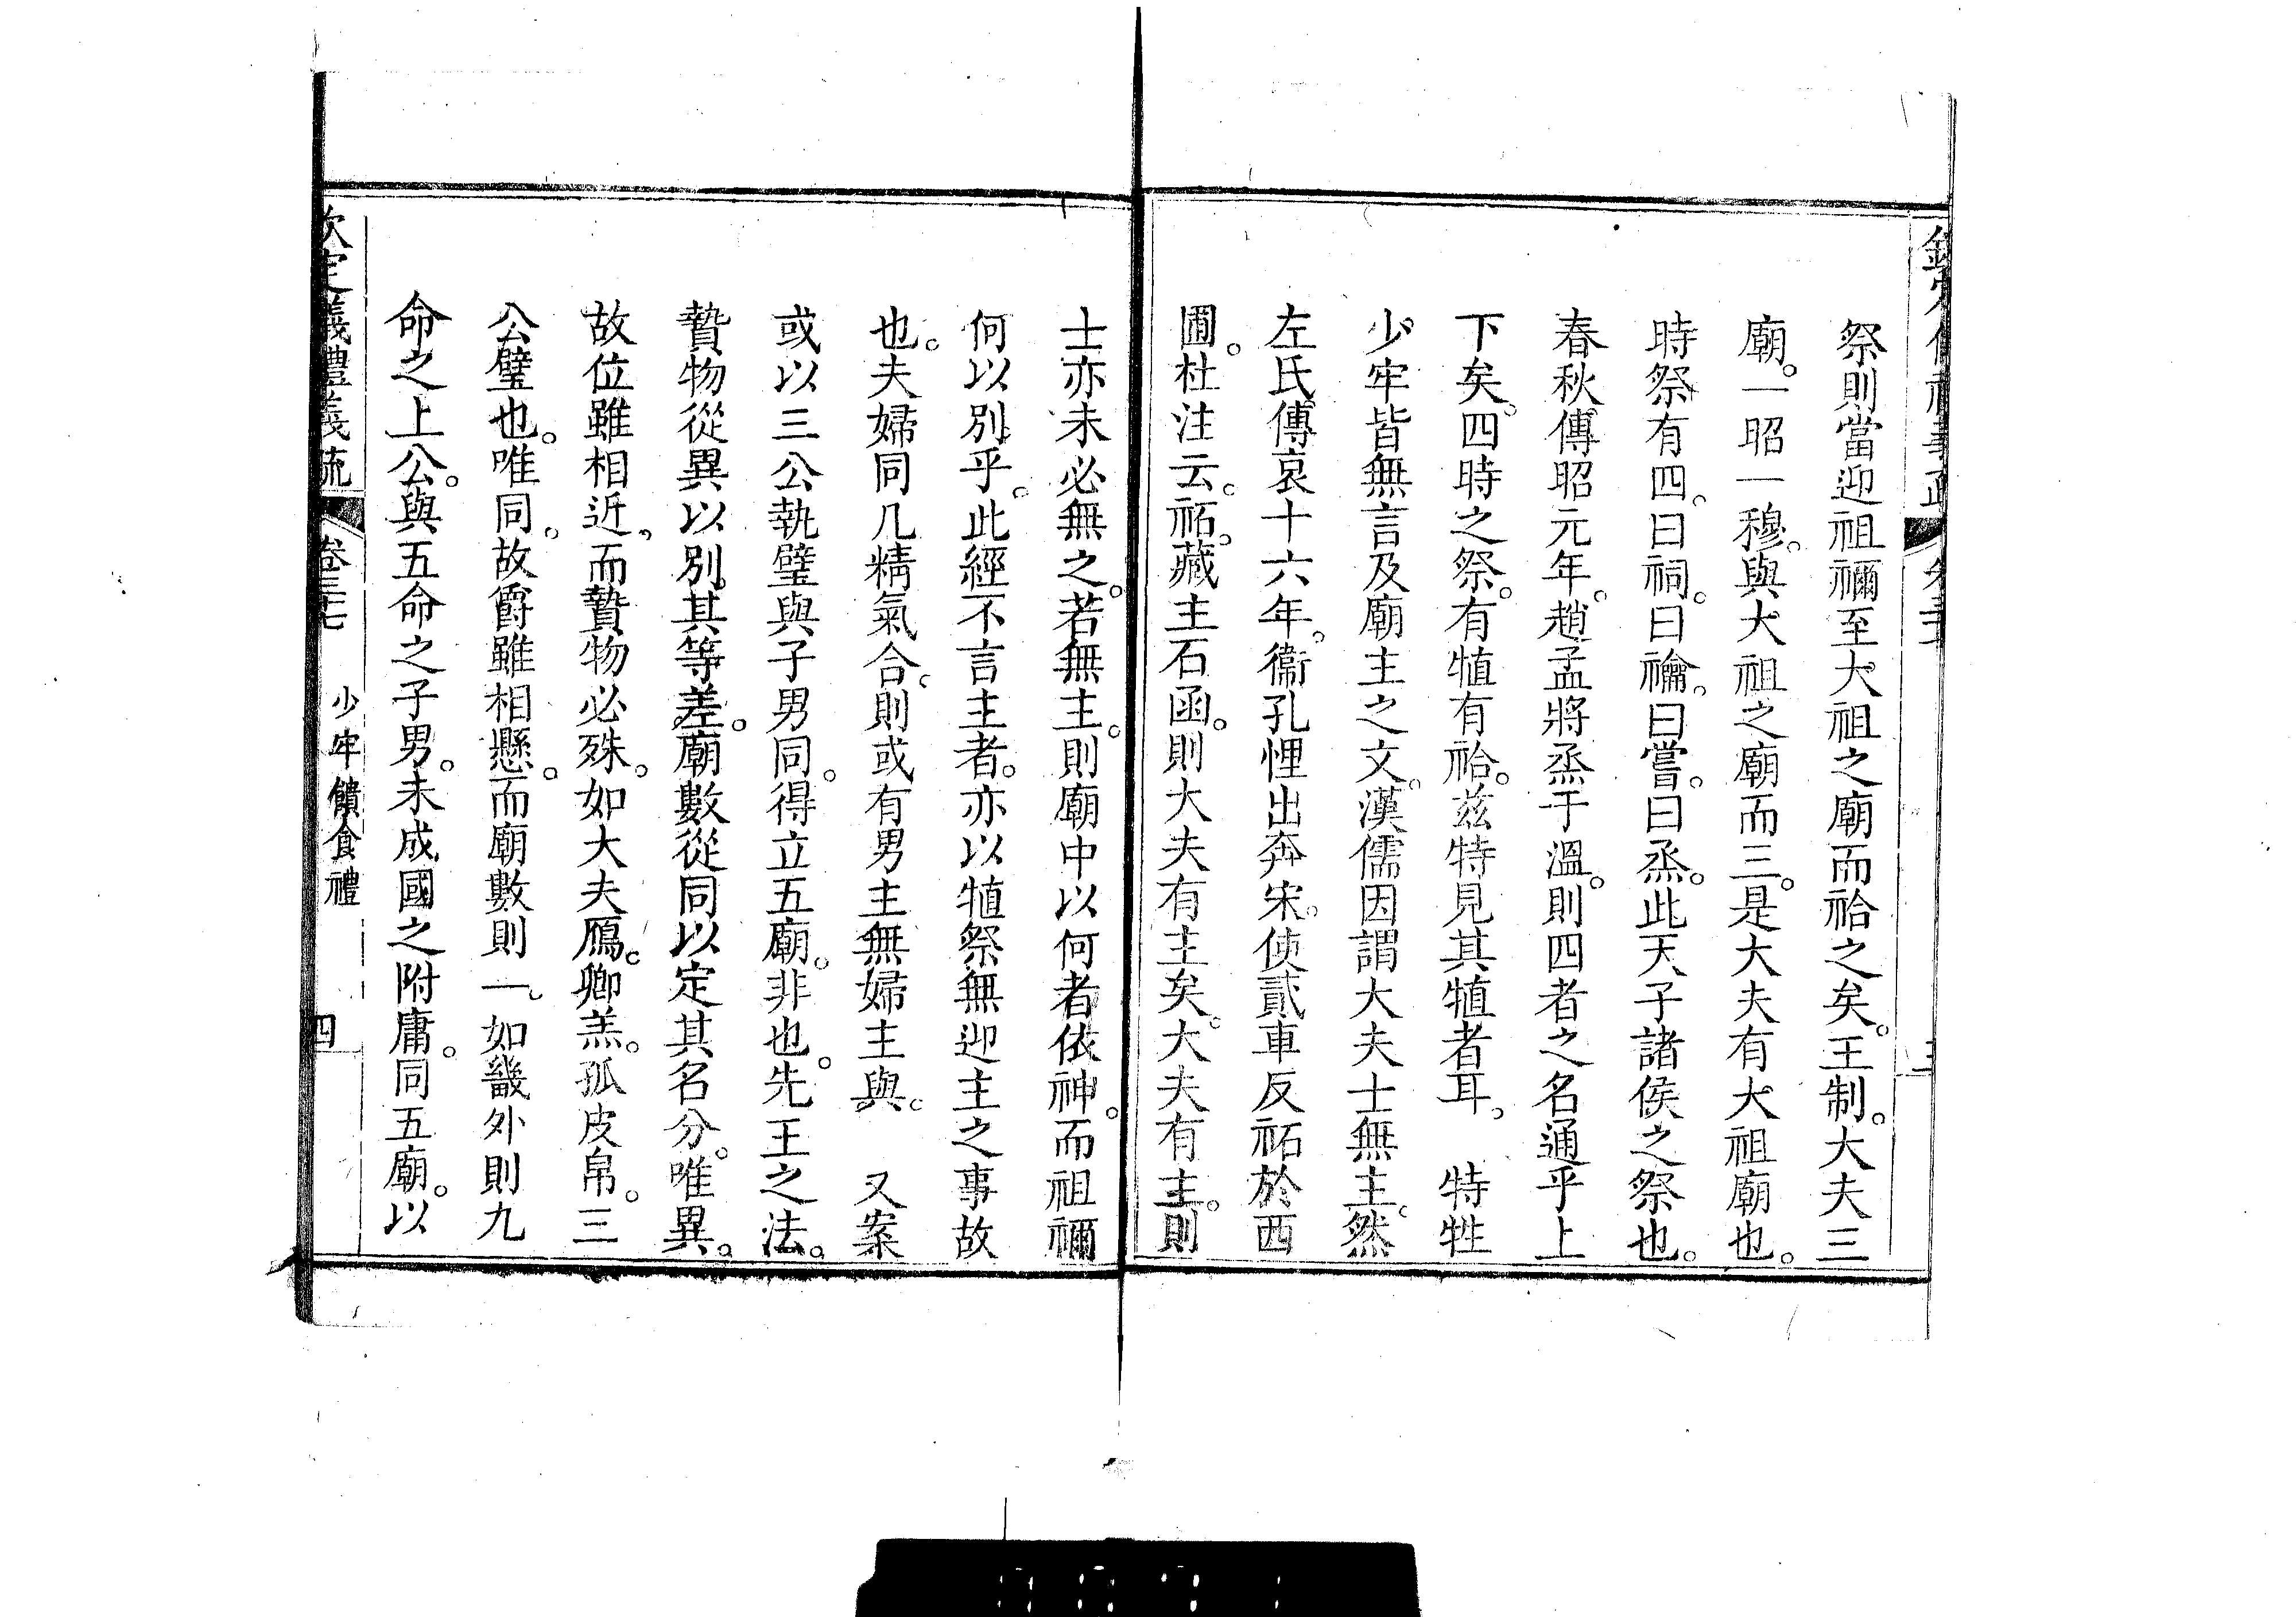 祭則當迎祖禰至大祖之廟而祫之矣。王制。大夫三
廟。一昭一穆。與大祖之廟而三。是大夫有大祖廟也。
時祭有四。曰祠。曰禴。曰嘗。曰烝。此天子諸侯之祭也。
春秋傳昭元年。趙孟將烝于溫。則四者之名通乎上
下矣。四時之祭。有犆有祫。兹特見其犆者耳。　特牲
少牢皆無言及廟主之文。漢儒因謂大夫士無主。然
左氏傳哀十六年。衞孔悝出奔宋。使貳車反祏於西
圃。杜注云。祏。藏主石函。則大夫有主矣。大夫有主。則
士亦未必無之。若無主。則廟中以何者依神。而祖禰
何以別乎。此經不言主者。亦以犆祭無迎主之事故
也。夫婦同几精氣合。則或有男主無婦主與。　又案
或以三公執璧與子男同。得立五廟。非也。先王之法。
贄物從異以別其等差。廟數從同以定其名分。唯異。
故位雖相近。而贄物必殊。如大夫鴈。卿羔。孤皮帛。三
公璧也。唯同。故爵雖相懸。而廟數則一。如畿外則九
命之上公。與五命之子男。未成國之附庸。同五廟。以
欽定儀禮義疏　卷三十七　少牢饋食禮　四